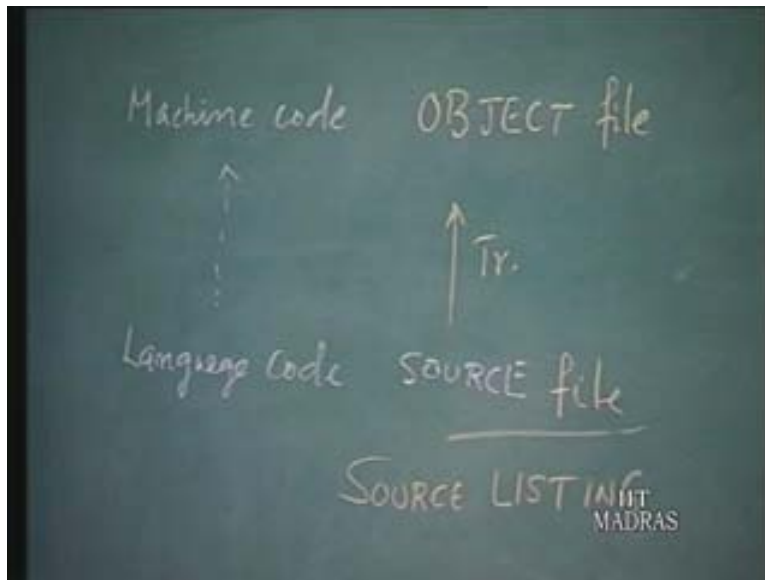 Machine code OBJECT file
Tr.
Language Code SOURCE file
SOURCE LISTING
IIT
MADRAS